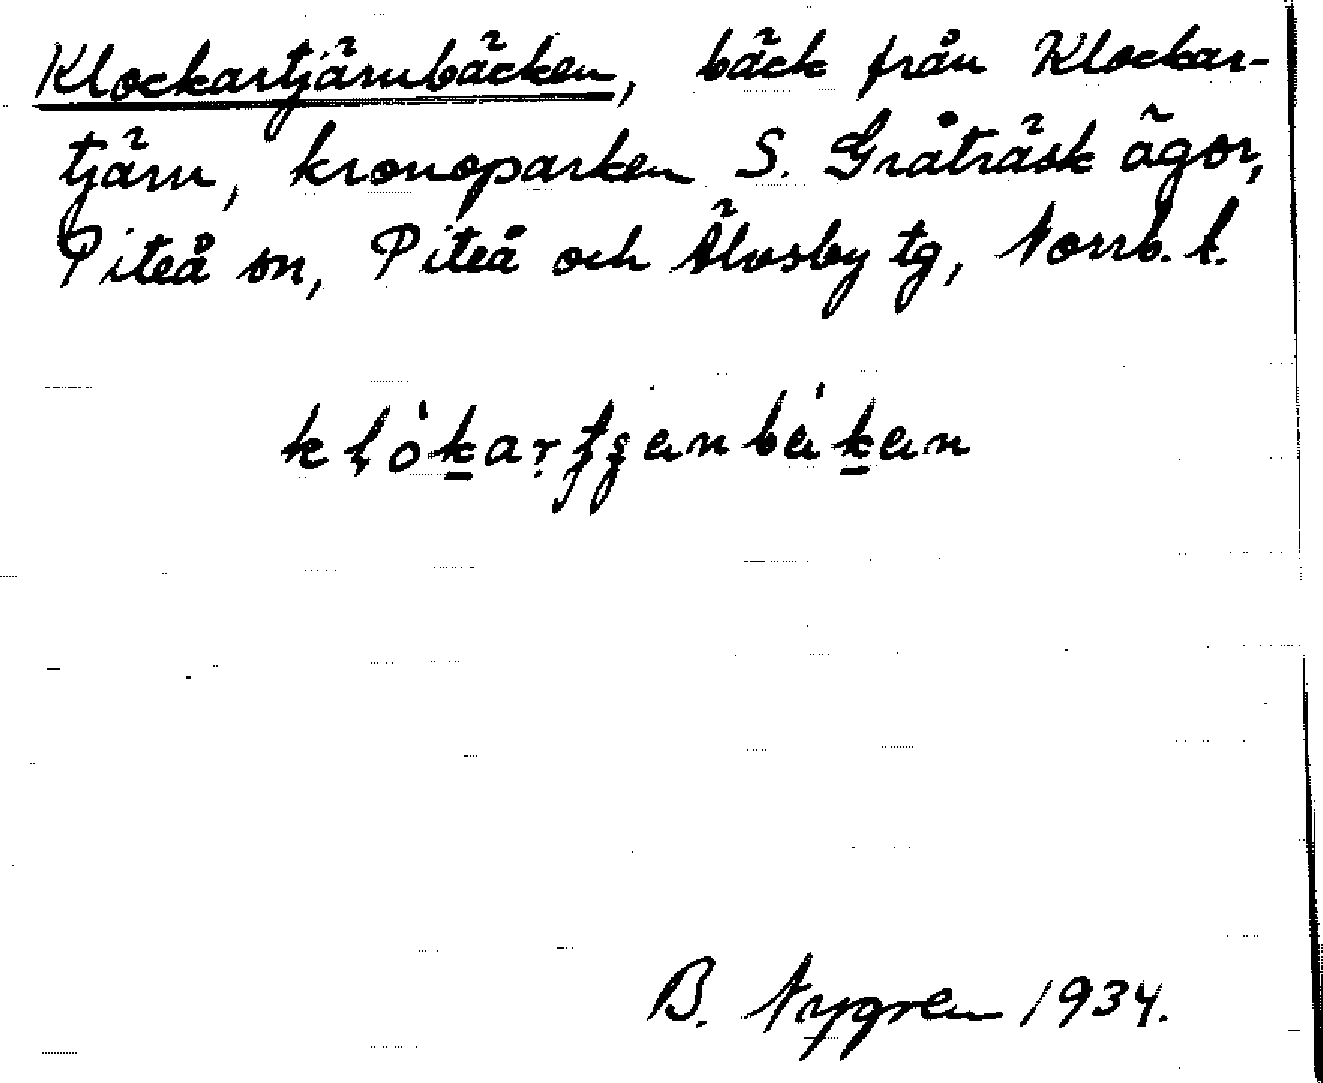 Klockartjärnbäcken, bäck från Klockar-
tjärn, kronoparken S. Gråträsk ägor,
Piteå sn, Piteå och Älvsby tg, Norrb. l.
B. Nygren 1934.